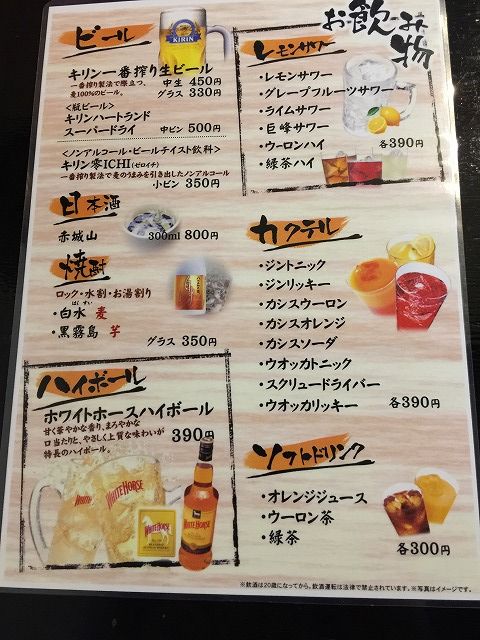 お飲み物
ビール
KIRIN
キリン一番搾り生ビール
一番搾り製法で際立つ、
麦100%のビール。
中生 450円
グラス 330円
<瓶ビール>
キリンハートランド
スーパードライ 中ビン 500円
<ノンアルコール・ビールテイスト飲料>
キリン零ICHI(ゼロイチ)
一番搾り製法で麦のうまみを引き出したノンアルコール
小ビン 350円
日本酒
赤城山 300ml 800円
焼酎
ロック・水割・お湯割り
はくすい
・白水 麦
・黒霧島 芋
グラス 350円
ハイボール
ホワイトホースハイボール
甘く華やかな香り、まろやかな
口当たりと、やさしく上質な味わいが
特長のハイボール。
390円
WHITE HORSE
WHITE HORSE
WHITE HORSE
WHITE HORSE
レモンサワー
・レモンサワー
・グレープフルーツサワー
・ライムサワー
・巨峰サワー
・ウーロンハイ 各390円
・緑茶ハイ
カクテル
・ジントニック
・ジンリッキー
・カシスウーロン
・カシスオレンジ
・カシスソーダ
・ウオッカトニック
・スクリュードライバー
・ウオッカリッキー 各390円
ソフトドリンク
・オレンジジュース
・ウーロン茶
・緑茶 各300円
※飲酒は20歳になってから。飲酒運転は法律で禁止されています。※写真はイメージです。